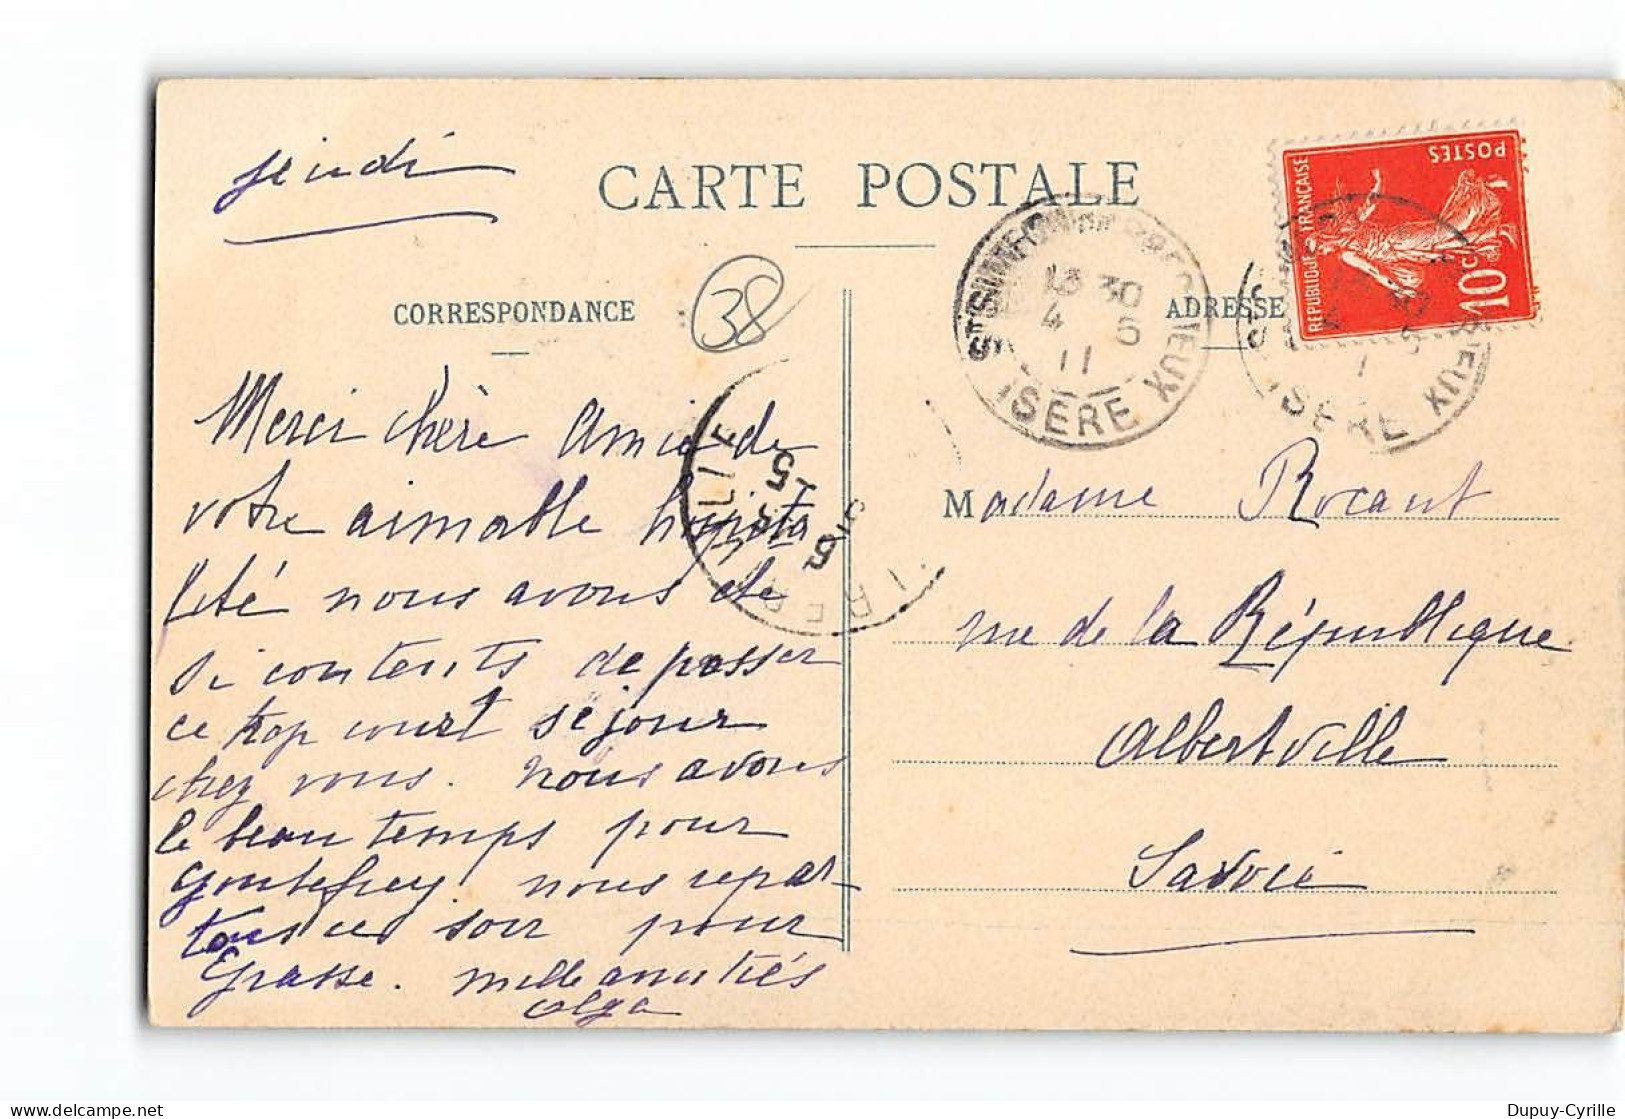 jeudi
CARTE POSTALE
CORRESPONDANCE
38
ADRESSE
POSTES
REPUBLIQUE FRANÇAISE
10 C
ST SIMEON DE BRESSIEUX
13 30
4 5
11
ISERE
ISERE
5 - 5
Merci chère Amie de
votre aimable hospita
lité nous avons été
si contents de passer
ce trop court séjour
chez vous. Nous avons
le beau temps pour
nous repar-
tons ce soir pour
Grasse. mille amitiés
Olga
Madame Rocaut
rue de la République
Albertville
Savoie
Dupuy-Cyrille